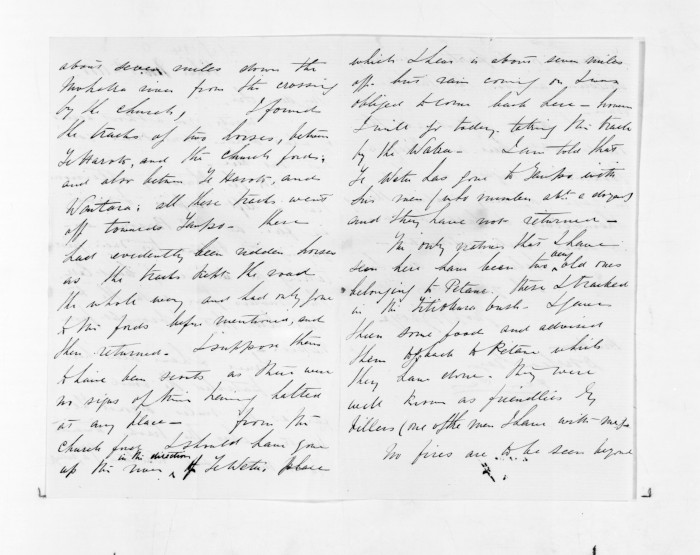 about seven miles down the
Mohaka river from the crossing
by the church, I found
the tracks of two horses, between
Te Haroto, and the church ford;
and also between Te Haroto, and
Waitara; all these tracks went
off towards Taupo. These
had evidently been ridden horses
as the tracks kept the road
the whole way and had only gone
to the fords before mentioned, and
then returned. I suppose them
to have been scouts as there were
no signs of their having halted
at any place — from the
Church ford I should have gone
up the river in the direction of Te Wetu's place
which I hear is about seven miles
off. but rain coming on I was
obliged to come back here —
I will go today, taking the track
by the I am told that
Te Wetu has gone to Taupo with
his men (who number abt. a dozen)
and they have not returned —
The only natives that I have
seen here have been two very old ones
belonging to Petane. these I tracked
in the Titiokura bush. I gave
them some food and advised
them to go back to Petane which
they have done. They were
well known as friendlies by
Villers (one of the men I have with me).
No fires are to be seen beyond